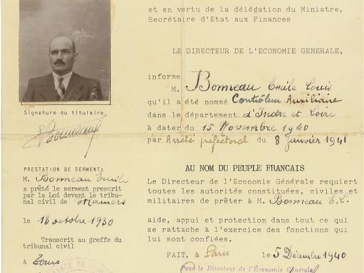 et en vertu de la délégation du Ministre,
Secrétaire d'Etat aux Finances
LE DIRECTEUR DE L'ECONOMIE GENERALE,
informe
M. Bonneau Emile Louis
qu'il a été nommé Contrôleur Auxiliaire
dans le département d'Indre et Loire
à dater du 15 Novembre 1940
par Arrêté préfectoral du 8 Janvier 1941
Signature du titulaire,
Bonneau
PRESTATION DE SERMENT
M. Bonneau Emile
a prêté le serment prescrit
par la Loi devant le tribu-
nal civil de Mamers
le 16 octobre 1930
Transcrit au greffe du
tribunal civil
à Tours
AU NOM DU PEUPLE FRANCAIS
Le Directeur de l'Economie Générale requiert
toutes les autorités constituées, civiles et
militaires de prêter à M. Bonneau E.L.
aide, appui et protection dans tout ce qui
se rattache à l'exercice des fonctions qui
lui sont confiées.
FAIT, à Paris le 5 Décembre 1940
Pour le Directeur de l'Economie Générale